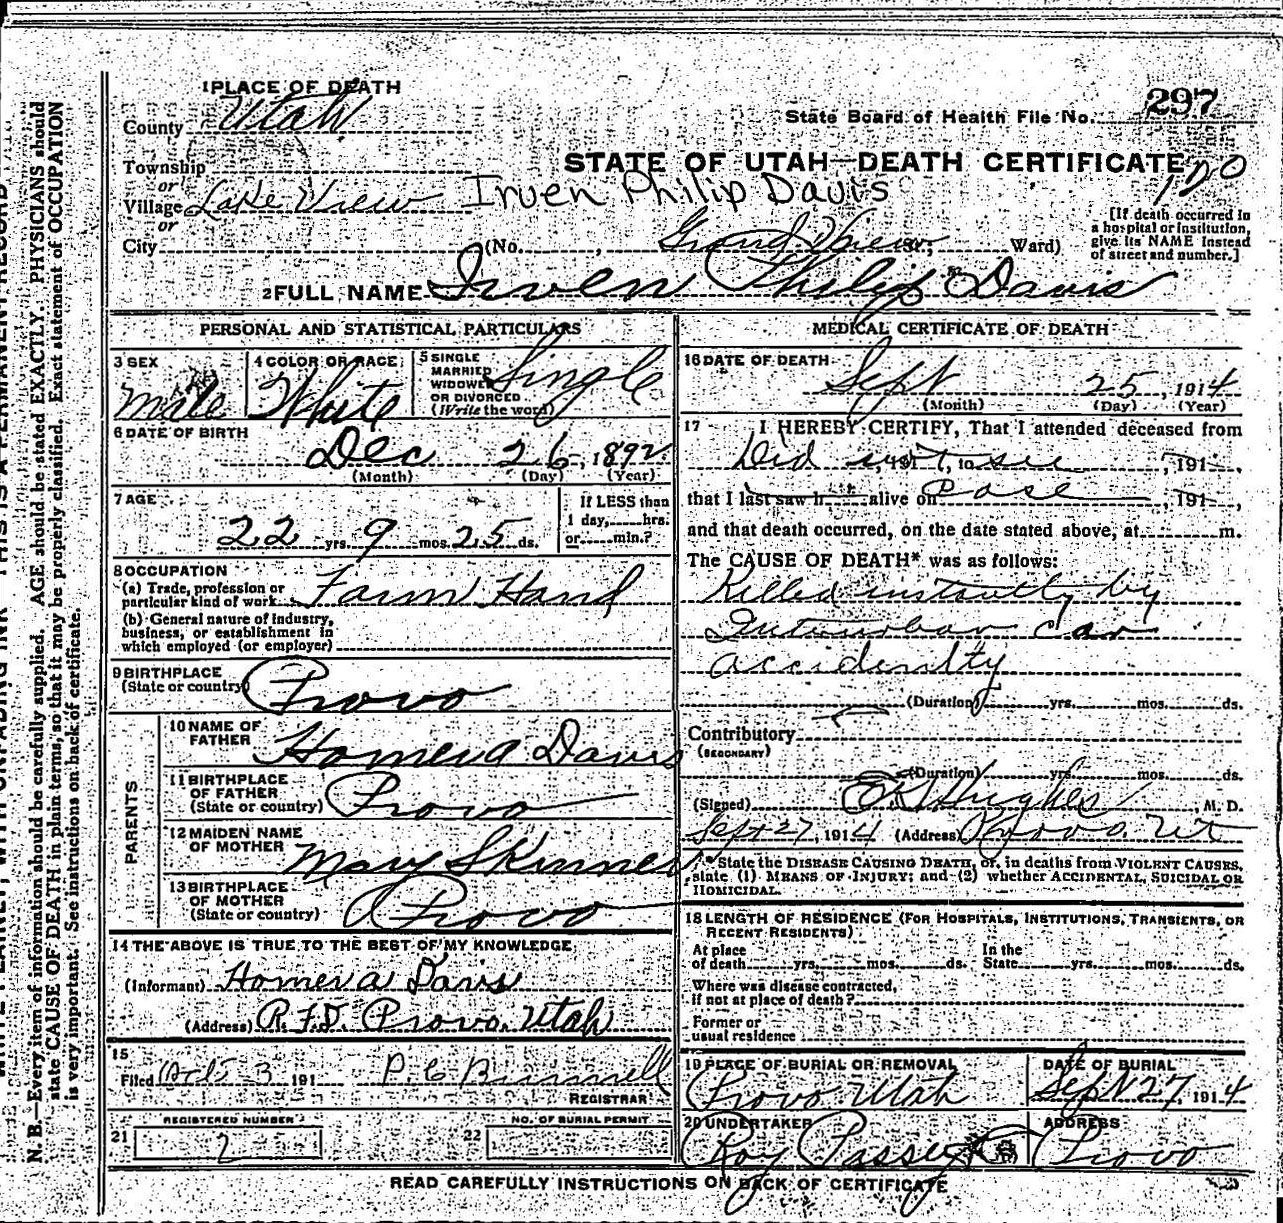 1 PLACE OF DEATH
County Utah
State Board of Health File No. 297
Township
or
Village Lake View
or
City
STATE OF UTAH—DEATH CERTIFICATE
120
Irven Philip Davis
(No. , Grand View St.; Ward)
[If death occurred in
a hospital or institution,
give its NAME instead
of street and number.]
2 FULL NAME Irven Philip Davis
PERSONAL AND STATISTICAL PARTICULARS
3 SEX
Male
4 COLOR OR RACE
White
5 SINGLE
MARRIED
WIDOWED
OR DIVORCED
(Write the word)
Single
6 DATE OF BIRTH
Dec 26, 1892
(Month) (Day) (Year)
7 AGE
22 yrs. 9 mos. 25 ds.
If LESS than
1 day, hrs.
or min.?
8 OCCUPATION
(a) Trade, profession or
particular kind of work Farm Hand
(b) General nature of industry,
business, or establishment in
which employed (or employer)
9 BIRTHPLACE
(State or country) Provo
PARENTS
10 NAME OF
FATHER Homer a Davis
11 BIRTHPLACE
OF FATHER
(State or country) Provo
12 MAIDEN NAME
OF MOTHER Mary Skinner
13 BIRTHPLACE
OF MOTHER
(State or country) Provo
14 THE ABOVE IS TRUE TO THE BEST OF MY KNOWLEDGE
(Informant) Homer a Davis
(Address) R.F.D. Provo, Utah
15
Filed 3 191
REGISTRAR
REGISTERED NUMBER
21 2
NO. OF BURIAL PERMIT
22
MEDICAL CERTIFICATE OF DEATH
16 DATE OF DEATH
Sept 25, 1914
(Month) (Day) (Year)
17 I HEREBY CERTIFY, That I attended deceased from
Did not see, 191 ,
that I last saw h alive on case, 191 ,
and that death occurred, on the date stated above, at m.
The CAUSE OF DEATH* was as follows:
Killed instantly by
Interurban car
accidently
(Duration) yrs. mos. ds.
Contributory
(SECONDARY)
(Duration) yrs. mos. ds.
(Signed) Hughes, M. D.
Sept 27, 1914 (Address) Provo. Ut
* State the DISEASE CAUSING DEATH, or, in deaths from VIOLENT CAUSES,
state (1) MEANS OF INJURY; and (2) whether ACCIDENTAL, SUICIDAL OR
HOMICIDAL.
18 LENGTH OF RESIDENCE (FOR HOSPITALS, INSTITUTIONS, TRANSIENTS, OR
RECENT RESIDENTS)
At place In the
of death yrs. mos. ds. State yrs. mos. ds.
Where was disease contracted,
if not at place of death?
Former or
usual residence
19 PLACE OF BURIAL OR REMOVAL
Provo Utah
DATE OF BURIAL
Sept 27, 1914
20 UNDERTAKER
Roy Passey
ADDRESS
Provo
READ CAREFULLY INSTRUCTIONS ON BACK OF CERTIFICATE
N. B.—Every item of information should be carefully supplied. AGE should be stated EXACTLY. PHYSICIANS should
state CAUSE OF DEATH in plain terms, so that it may be properly classified. Exact statement of OCCUPATION
is very important. See instructions on back of certificate.